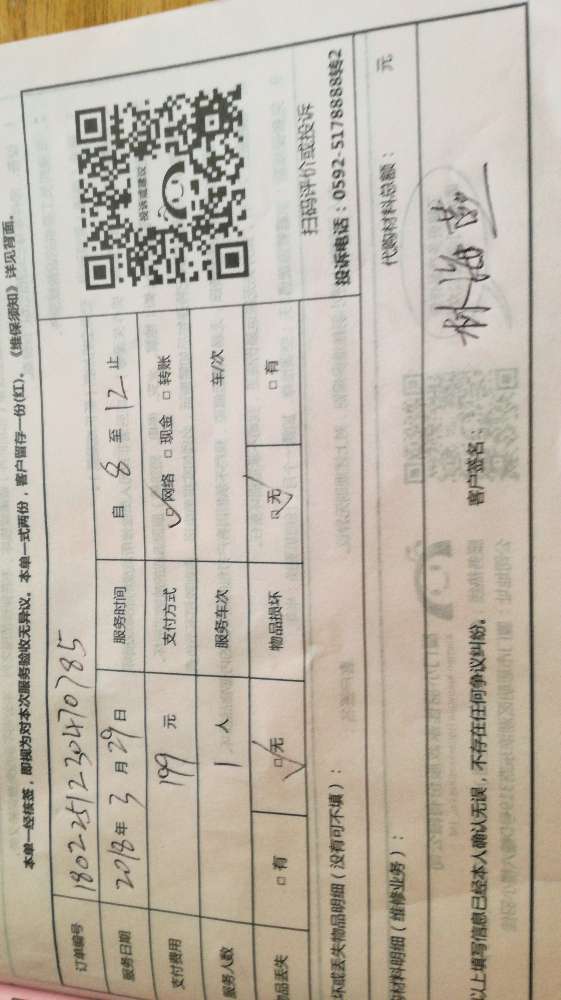 本单一经核签，即视为对本次服务验收无异议。本单一式两份，客户留存一份(红)。《维保须知》详见背面。
订单编号 1802251230470785
服务日期 2018年3月29日 服务时间 自 8 至 12 止
支付费用 199 元 支付方式 ☑网络 □现金 □转账
服务人数 1 人 服务车次 车/次
物品丢失 □有 ☑无 物品损坏 ☑无 □有
投诉或建议
扫码评价或投诉
投诉电话：0592-5178888转2
坏或丢失物品明细（没有可不填）：
材料明细（维修业务）： 代购材料总额： 元
以上填写信息已经本人确认无误，不存在任何争议纠纷。 客户签名：